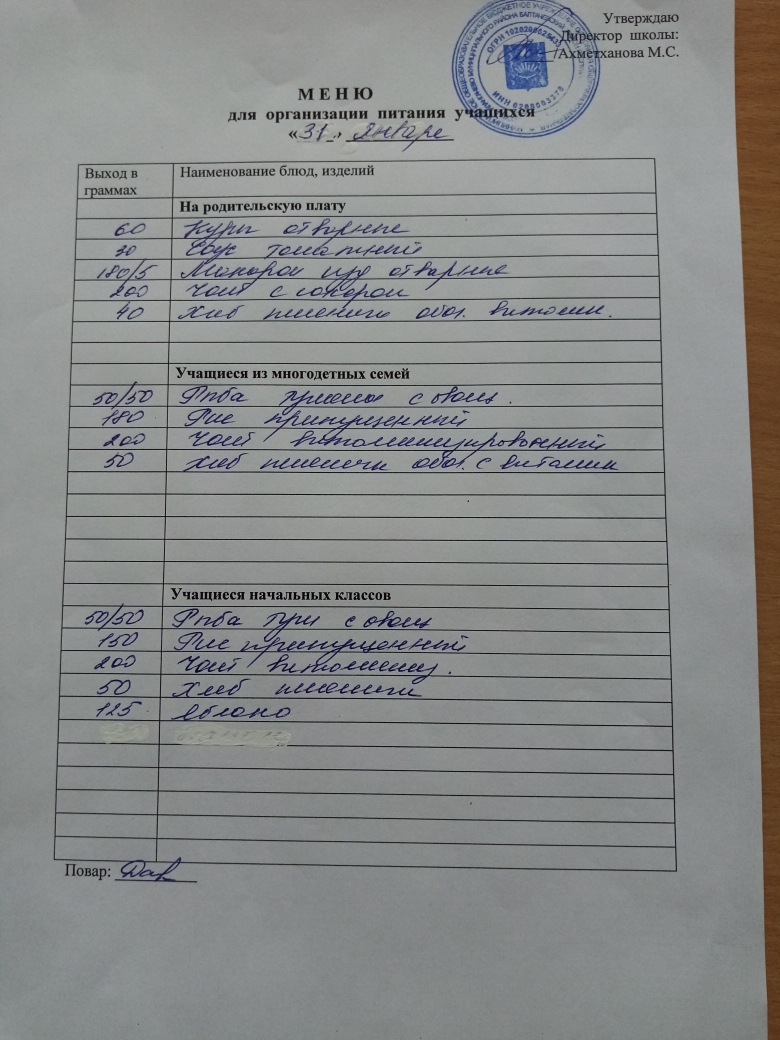 Утверждаю
Директор школы:
Ахметханова М.С.
МЕНЮ
для организации питания учащихся
«31» января
Выход в граммах Наименование блюд, изделий
На родительскую плату
60 Куры отварные
30 Соус томатный
180/5 Макарон изд отварные
200 Чай с сахаром
40 Хлеб пшенич обог. витамин.
Учащиеся из многодетных семей
50/50 Рыба тушеная с овощ.
180 Рис припущенный
200 Чай витаминизированный
50 Хлеб пшенич обог. с витамин
Учащиеся начальных классов
50/50 Рыба туш с овощ
150 Рис припущенный
200 Чай витаминиз.
50 Хлеб пшенич
125 Яблоко
Повар: